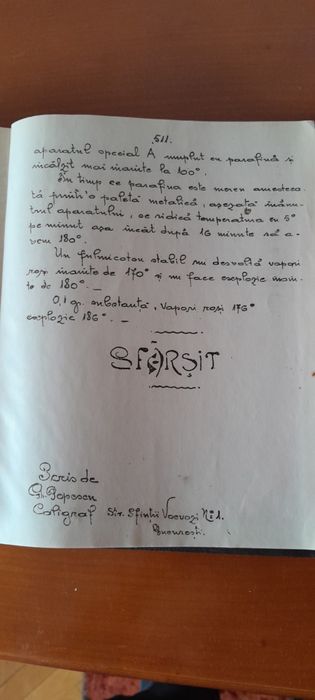 511.
aparatul special A umplut cu parafină și
încălzit mai înainte la 100°.
În timp ce parafina este mereu amesteca-
tă printr'o paletă metalică, așezată înăun-
trul aparatului, se ridică temperatura cu 5°
pe minut așa încât după 16 minute să a-
vem 180°.
Un fulmicoton stabil nu desvoltă vapori
roși înainte de 170° și nu face explozie înain-
te de 180°. —
0,1 gr. substanță, vapori roși 176°
explozie 186°. —
SFÂRȘIT
Scris de
Gh. Popescu
Caligraf Str. Sfinții Voevozi No 1.
București.